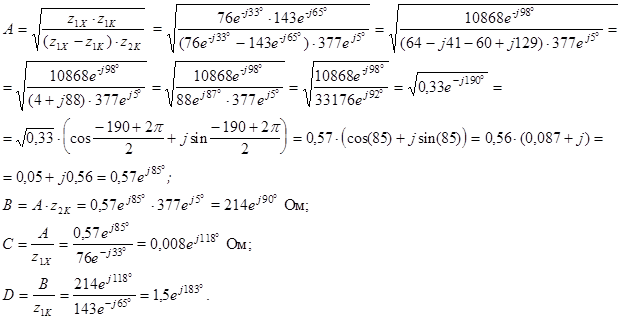 A = √(z₁X · z₁K / ((z₁X − z₁K) · z₂K)) = √(76e^(-j33°) · 143e^(-j65°) / ((76e^(-j33°) − 143e^(-j65°)) · 377e^(j5°))) = √(10868e^(-j98°) / ((64 − j41 − 60 + j129) · 377e^(j5°))) =
= √(10868e^(-j98°) / ((4 + j88) · 377e^(j5°))) = √(10868e^(-j98°) / (88e^(j87°) · 377e^(j5°))) = √(10868e^(-j98°) / (33176e^(j92°))) = √(0,33e^(−j190°)) =
= √0,33 · (cos (−190 + 2π)/2 + j sin (−190 + 2π)/2) = 0,57 · (cos(85) + j sin(85)) = 0,56 · (0,087 + j) =
= 0,05 + j0,56 = 0,57e^(j85°);
B = A · z₂K = 0,57e^(j85°) · 377e^(j5°) = 214e^(j90°) Ом;
C = A / z₁X = 0,57e^(j85°) / 76e^(−j33°) = 0,008e^(j118°) Ом;
D = B / z₁K = 214e^(j118°) / 143e^(−j65°) = 1,5e^(j183°) .